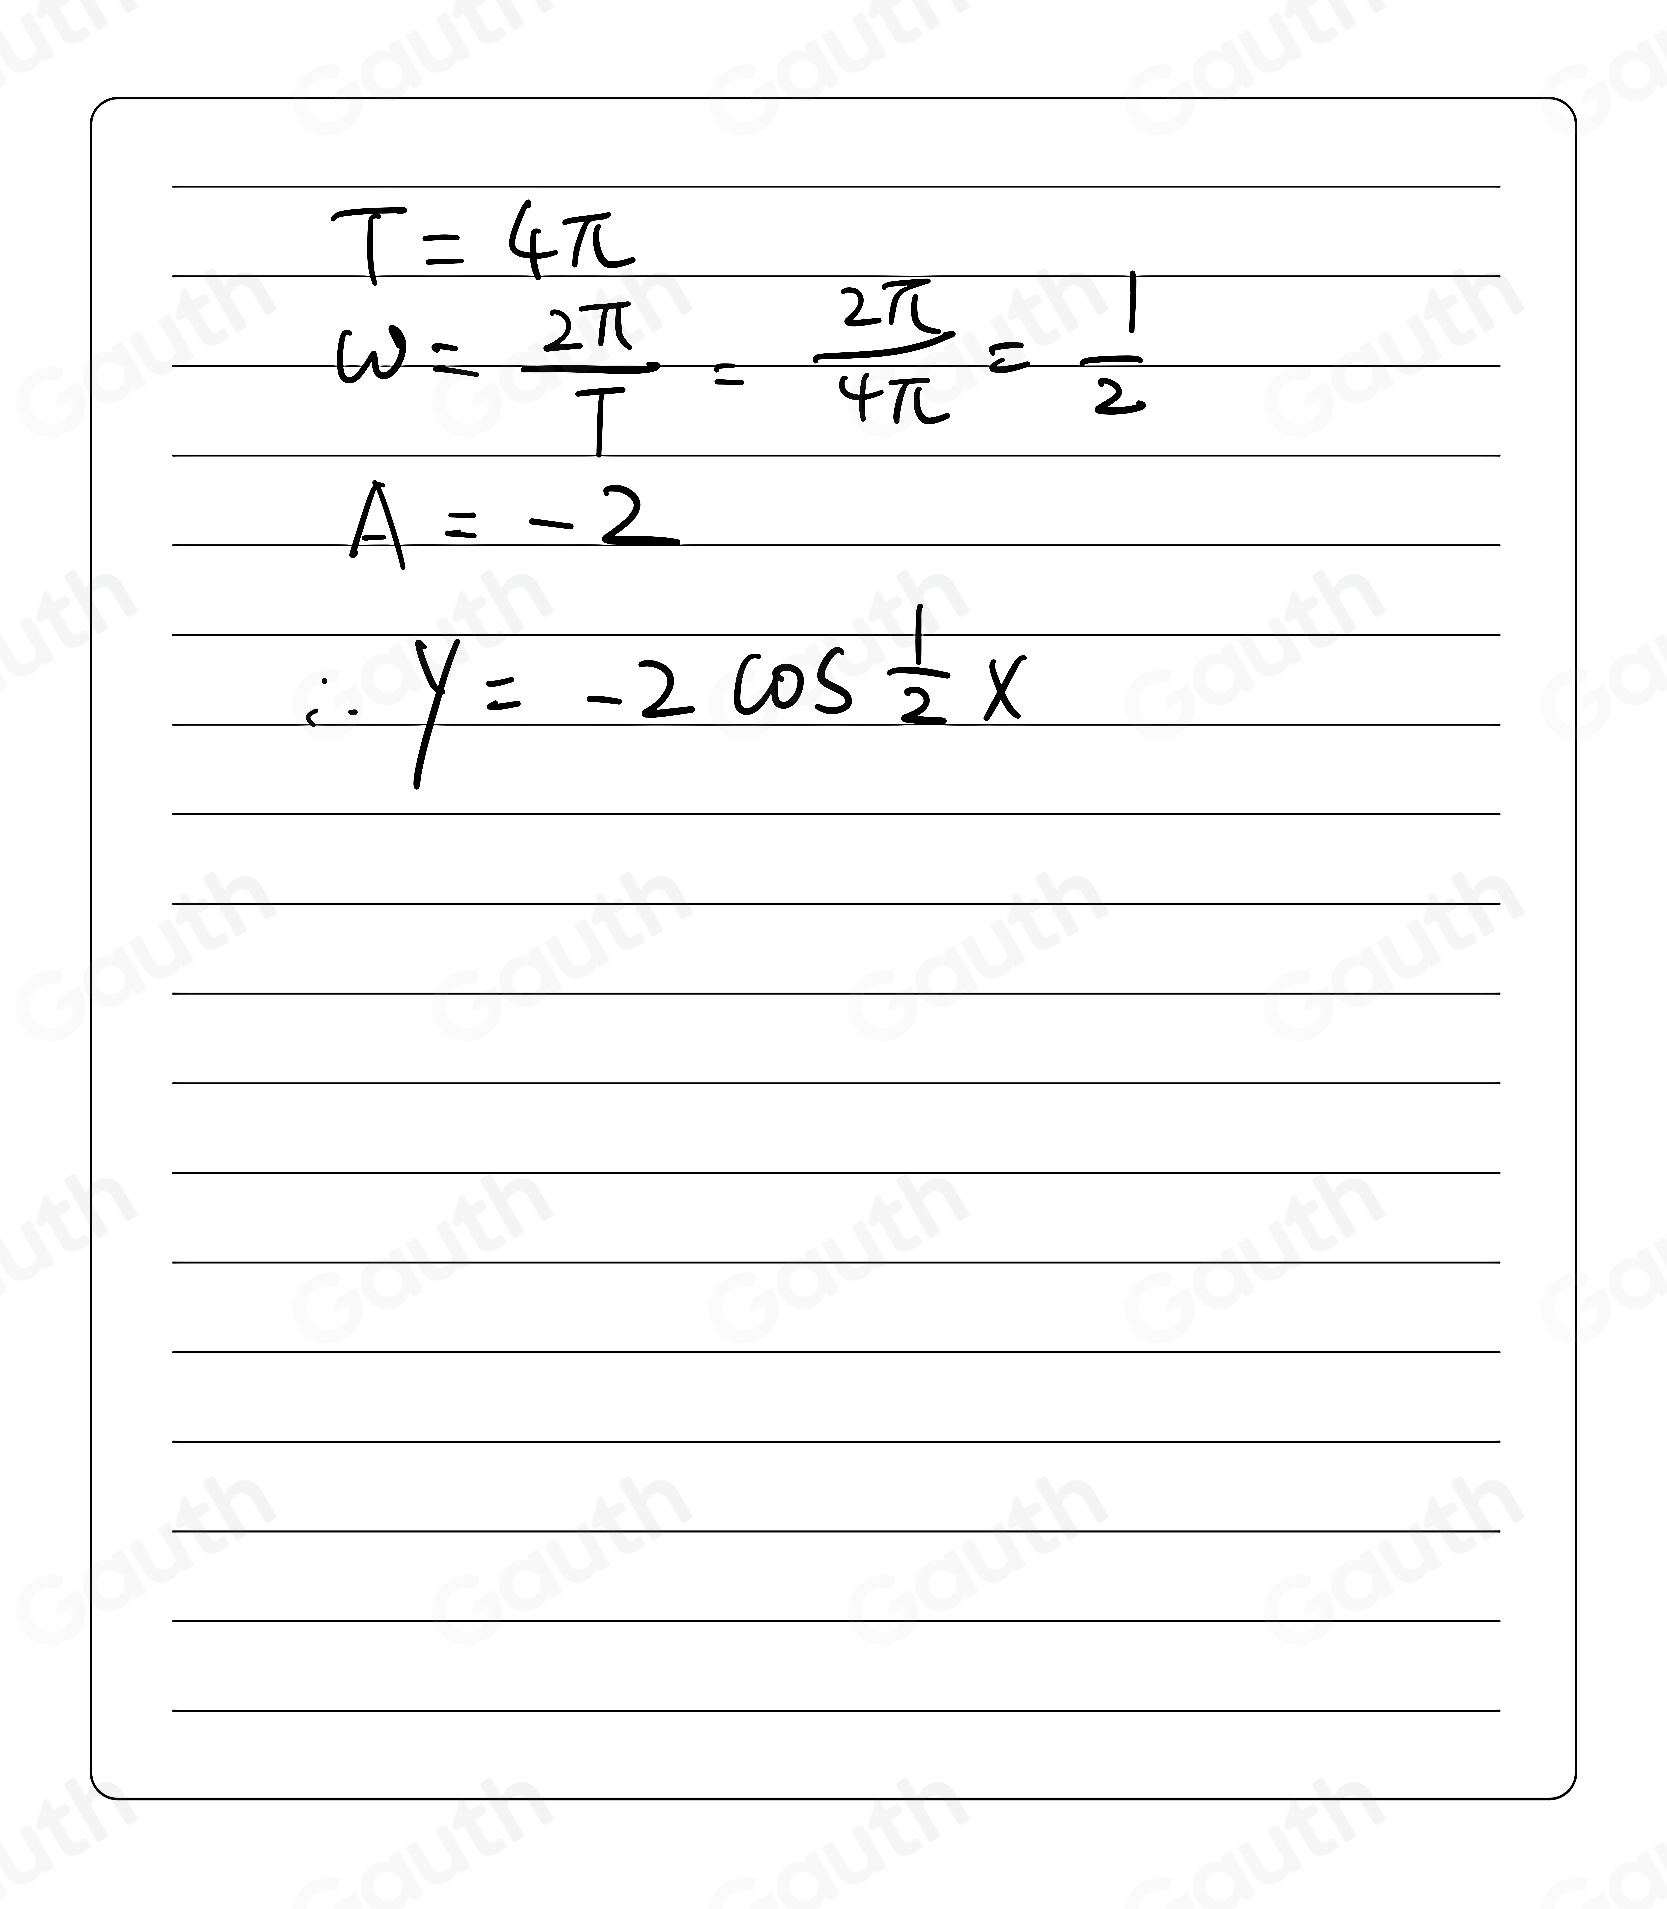 T = 4π
ω = 2π/T = 2π/4π = 1/2
A = -2
∴ y = -2 cos 1/2 x
Gauth